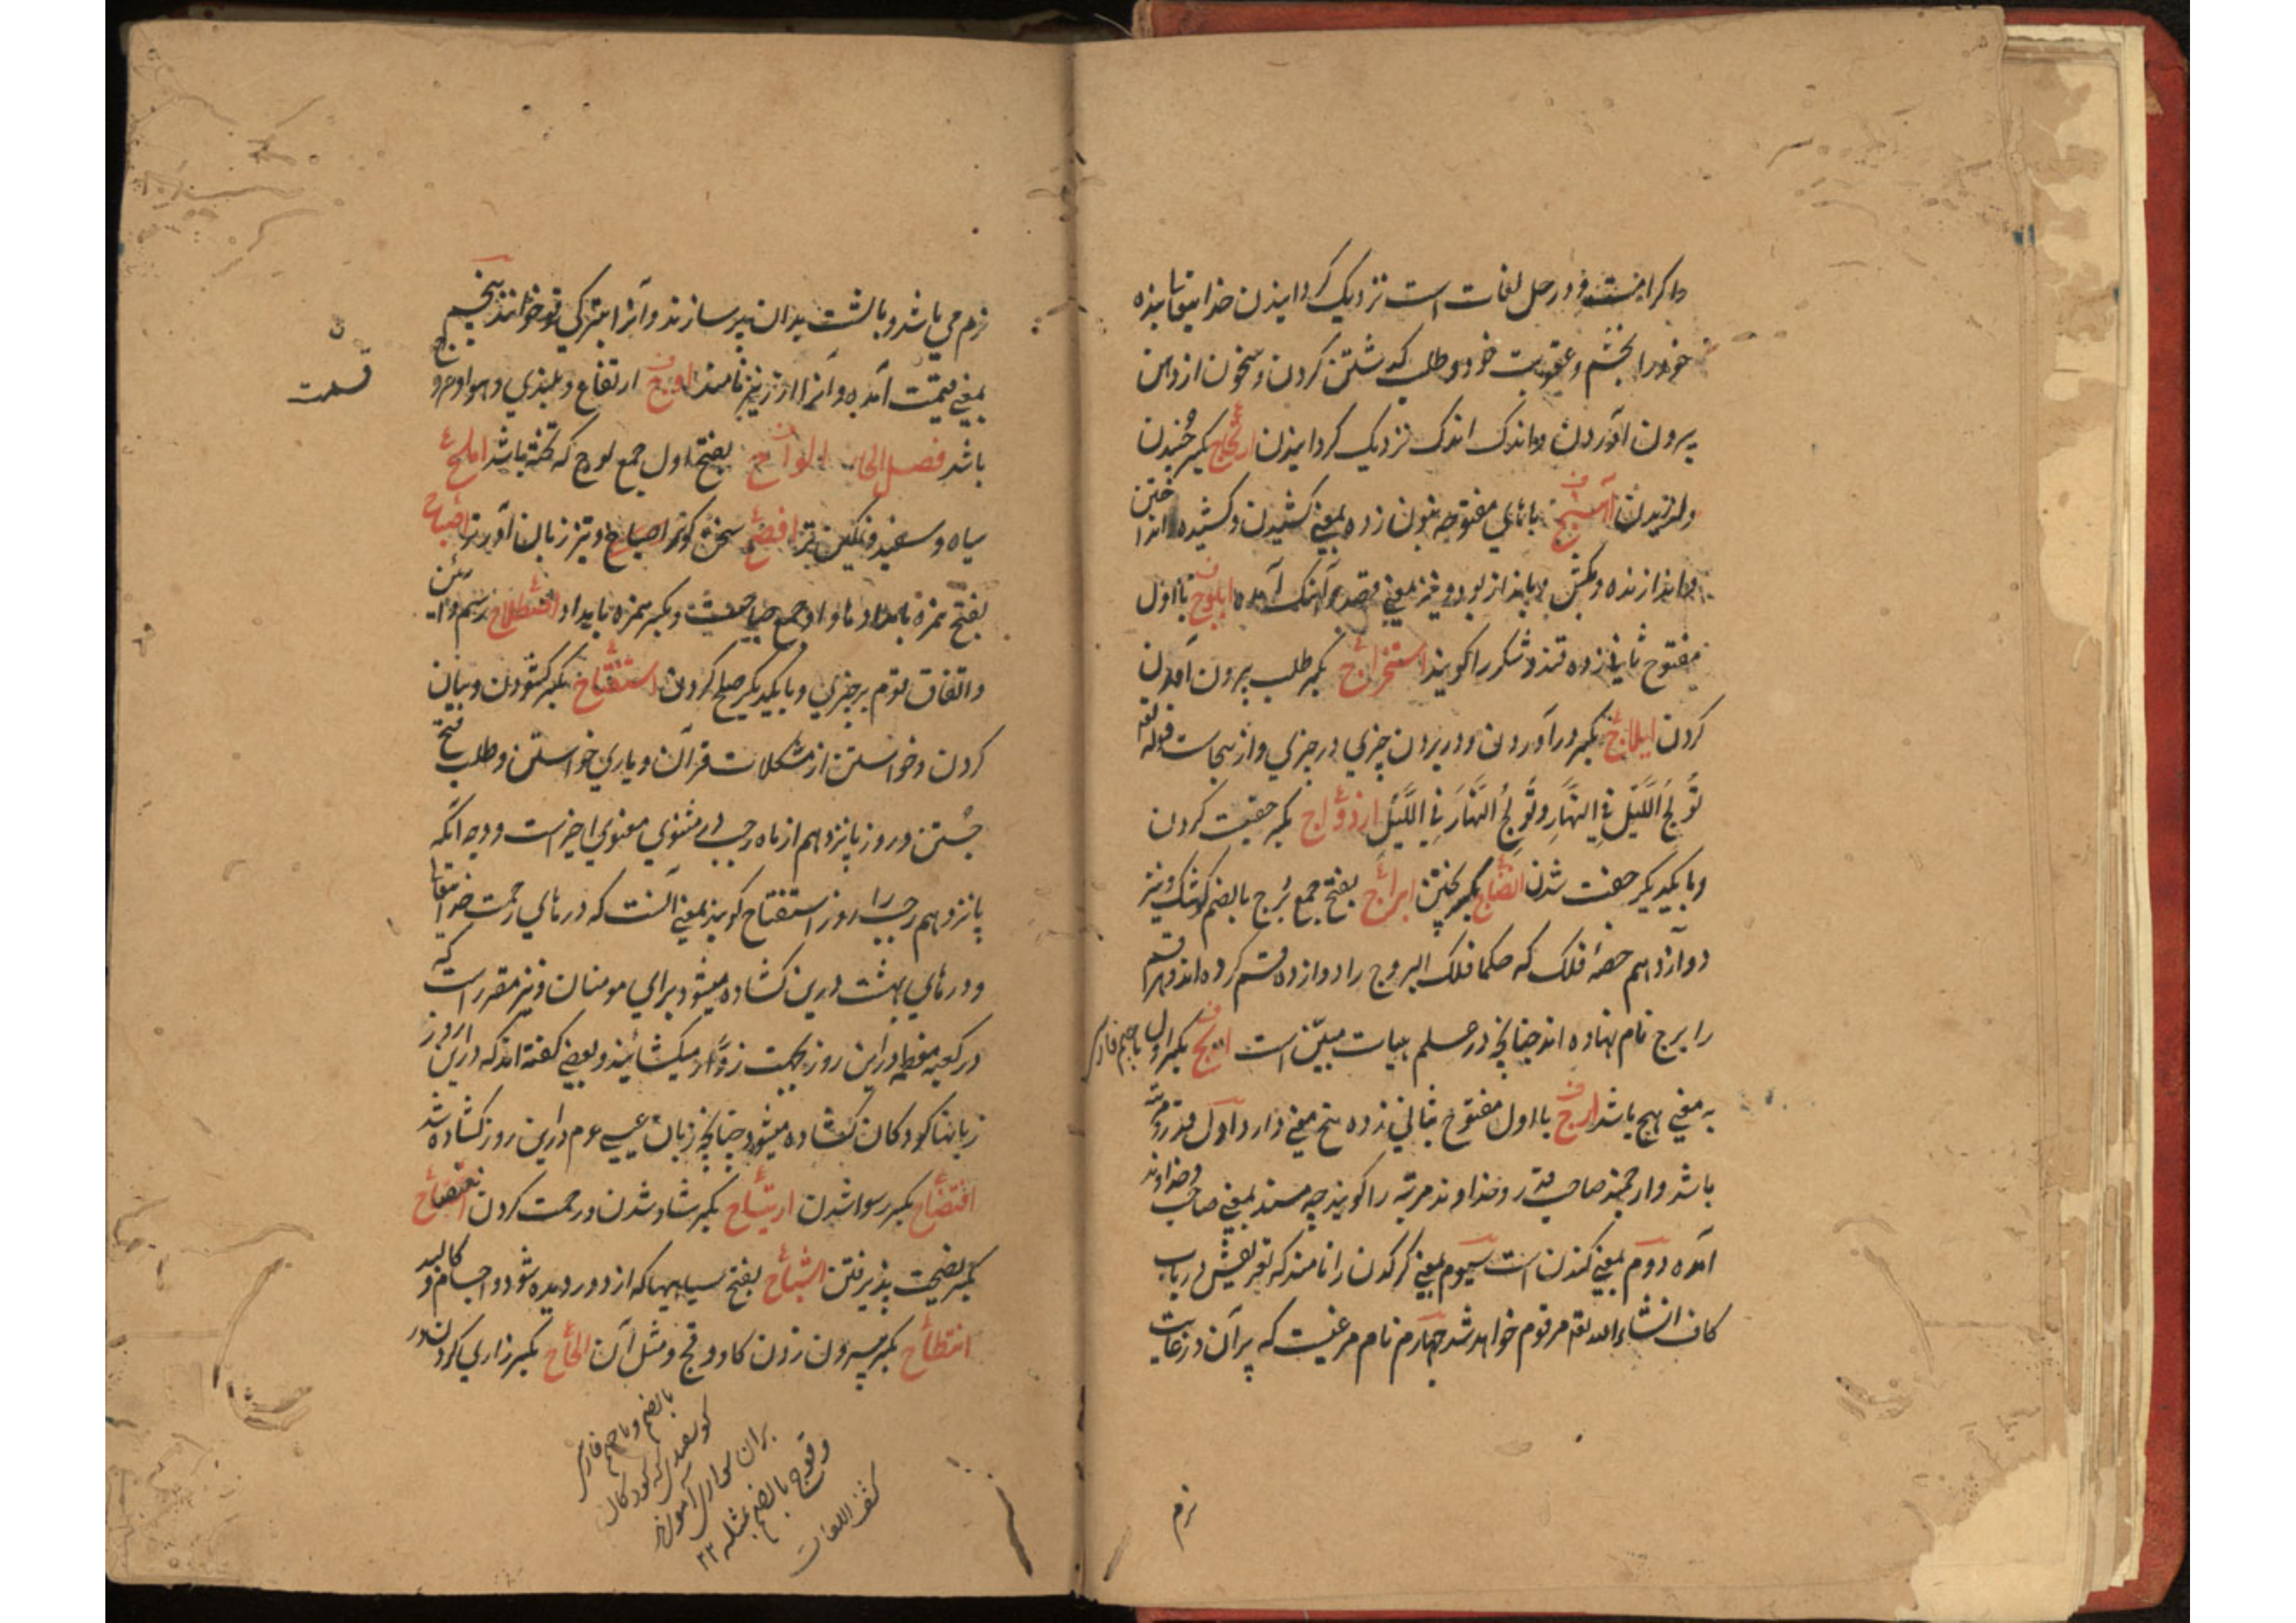 داکرامنست و در حل لغات است نزدیک گردانیدن خدایتعالی بنده
خود را بخشم و عقوبت خود و طلب کردن و سخون از دهن
بیرون آوردن و اندک اندک نزدیک گردانیدن ارتجاج بکسر جنبیدن
و لرزیدن آهنج بانای مفتوحه بنون زده بمعنی کشیدن و کشیده انداختن
و اندازنده و بکش و بینداز بود و نیز بمعنی قصد و آهنگ آمده ابلوج با اول
مفتوح ثانی زده قند و شکر را گویند استخراج بکسر طلب بیرون آمدن
کردن ایلاج بکسر در آوردن و در بردن چیزی در چیزی و ازینجاست قوله تعه
تُولِجُ اللَّیْلَ فِی النَّهَارِ وَتُولِجُ النَّهَارَ فِی اللَّیْلِ ازدواج بکسر جفت کردن
و با یکدیگر جفت شدن انضاج بکسر پختن ابراج بفتح جمع بُرج بالضم کوشک و نیز
دوازدهم حصهٔ فلک که حکما فلک البروج را دوازده قسم کرده اند و هر قسم
را برج نام نهاده اند چنانچه در علم هیات مبیّن است ایچ بکسر اول با جیم فارسی
به معنی هیچ باشد ارج با اول مفتوح بثانی زده پنج معنی دارد اول قدر و مرتبه
باشد و ارجمند صاحب قدر و خداوند مرتبه را گویند چه مند بمعنی صاحب و خداوند
آمده دوم بمعنی کندن است سیوم بمعنی کرکدن را نامند که تعریفش در باب
کاف انشاء الله تعه مرقوم خواهد شد چهارم نام مرغیست که پر آن در غایت
نرم
نرم می باشد و بالشت بدان پر سازند و آنرا بترکی قو خوانند پنجم
بمعنی قیمت آمده و آنرا ارز نیز نامند اوج ارتفاع و بلندی و هوا و مرو
باشد فصل الحاء الواح بفتح اول جمع لوح که تخته باشد املح
سیاه و سفید و نمکین تر افصح سخن گو تر و تیز زبان آورتر اصباح
بفتح همزه بامداد ها و او جمع صباحست و بکسر همزه بامداد اصطلاح رسم و آئین
و اتفاق قوم بر چیزی و با یکدیگر صلح کردن استفتاح بکسر گشودن و بیان
کردن و خواستن از مشکلات قرآن و یاری خواستن و طلب فتح
جستن و روز پانزدهم از ماه رجب در مثنوی معنوی اخیر است و وجه آنکه
پانزدهم رجب را روز استفتاح گویند بمعنی آنست که درهای رحمت خدایتعالی
و درهای بهشت درین کشاده میشود برای مومنان و نیز مقرر است که
در کعبه معظمه درین روز بجهت زوّار میکشائیند و بعضی گفته اند که درین روز
زبانها کودکان کشاده میشود چنانچه زبان عیسی عم درین روز کشاده شد
افتضاح بکسر رسوا شدن ارتیاح بکسر شاد شدن و رحمت کردن انتصاح
بکسر نصیحت پذیرفتن اشباح بفتح سیاهیها که از دور دیده شود و اجسام و کالبد
انتطاح بکسر سرون زدن گاو و قچ و مثل آن الحاح بکسر زاری کردن و در
قسمت
بالضم و با جیم فارسی
گوسفندی که کودکان
بران سواری آموزند
و قوچ بالضم مثله ۱۲
کشف اللغات